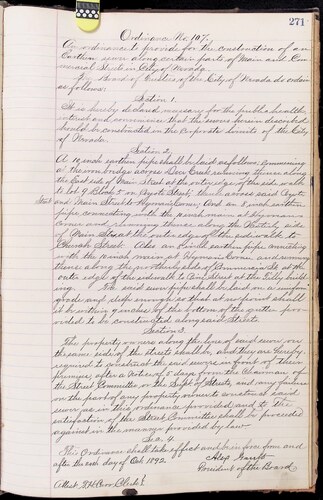 271
Ordinance No 107.
An ordinance to provide for the construction of an
Earthen sewer along certain parts of Main and Com-
mercial Streets in City of Nevada.
The Board of Trustees of the City of Nevada do ordain
as follows:
Section 1.
It is hereby declared necessary for the public health,
interest and convenience that the sewer herein described
should be constructed in the Corporate limits of the City
of Nevada.
Section 2.
A 10 inch earthen pipe shall be laid as follows, Commencing
at the iron bridge across Deer Creek running thence along
the East side of Main Street at the outer edge of the side walk
to Lot 9 Block 5 on Coyote Street, thence across said Coyote
Street and Main Street to Hyman's Corner. And an 8 inch earthen
pipe connecting with the 10 inch main at Hyman's
Corner and running thence along the side
of Main St. at the outer edge of the sidewalk to
Church Street. Also an 8 inch earthen pipe connecting
with the 10 inch main at Hyman's Corner and running
thence along the northern side of Commercial St. at the
outer edge of the sidewalk to a point at the City build-
ing. The said sewer pipe shall be laid on a uniform
grade and deep enough so that at no point shall
it be within 9 inches of the bottom of the gutter prov-
orded to be constructed along said Streets.
Section 3.
The property owners along the line of said sewer on
the same side of the street shall be, and they are hereby
required to construct the said sewer in front of their
premises, after a notice of 5 days from the Chairman of
the Street Committee or the Supt of Streets, and any failure
on the part of any property owner to construct said
sewer as in this ordinance provided and to the
satisfaction of the Street Committee shall be proceeded
against in the manner provided by law.
Sec. 4.
This Ordinance shall take effect and be in force from and
after the 6th day of Oct. 1892.
Alex Gault
President of the Board
Attest Clerk